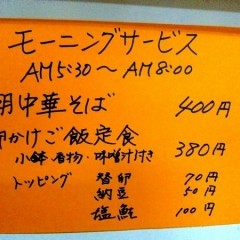 モーニングサービス
AM5:30～AM8:00
朝中華そば 400円
卵かけご飯定食 380円
小鉢・香物・味噌汁付き
トッピング 替卵 70円
納豆 50円
塩鮭 100円